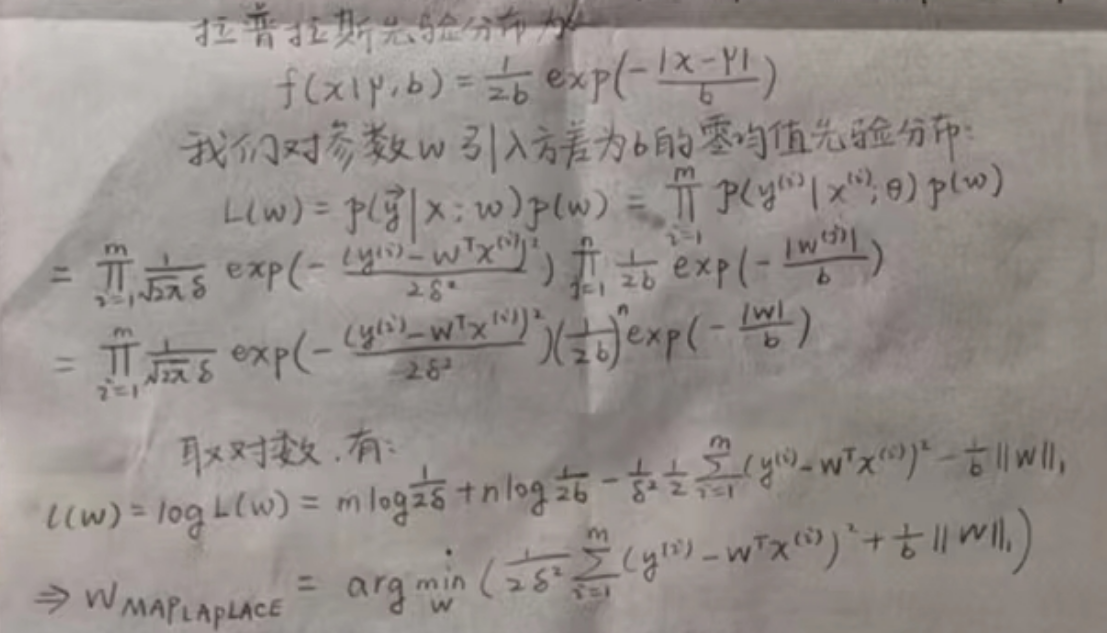 拉普拉斯先验分布为
f(x|μ,b) = 1/2b exp(-|x-μ|/b)
我们对参数w引入方差为b的零均值先验分布:
L(w) = p(y⃗|x;w)p(w) = ∏_{i=1}^{m} p(y^{(i)}|x^{(i)};θ)p(w)
= ∏_{i=1}^{m} 1/√2π δ exp(-(y^{(i)}-w^T x^{(i)})²/2δ²) ∏_{j=1}^{n} 1/2b exp(-|w^{(j)}|/b)
= ∏_{i=1}^{m} 1/√2π δ exp(-(y^{(i)}-w^T x^{(i)})²/2δ²)(1/2b)^n exp(-|w|/b)
取对数.有:
l(w) = log L(w) = m log 1/2δ + n log 1/2b - 1/δ² 1/2 ∑_{i=1}^{m}(y^{(i)}-w^T x^{(i)})² - 1/b ||w||₁
⇒ W_{MAPLAPLACE} = arg min_w (1/2δ² ∑_{i=1}^{m}(y^{(i)}-w^T x^{(i)})² + 1/b ||w||₁)